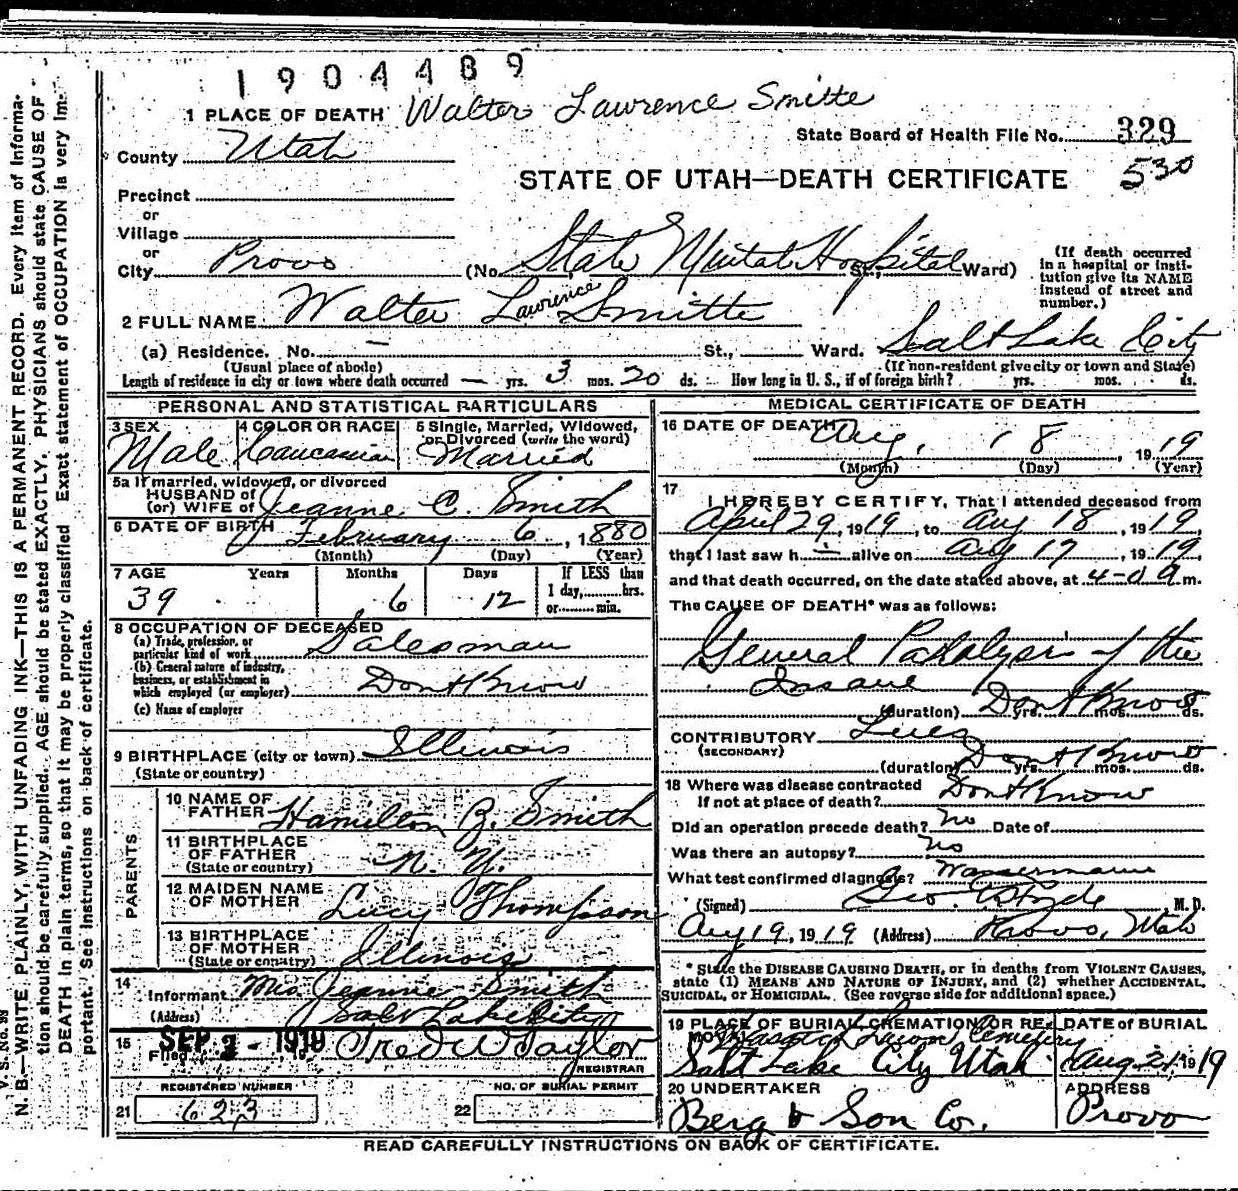 1904489
1 PLACE OF DEATH Walter Lawrence Smitte
State Board of Health File No. 329
County Utah
530
STATE OF UTAH—DEATH CERTIFICATE
Precinct
or
Village
or
City Provo (No. State Mental Hospital St., Ward)
(If death occurred in a hospital or insti-
tution give its NAME
instead of street and
number.)
2 FULL NAME Walter Lawrence Smitte
(a) Residence. No. — St., Ward. Salt Lake City
(Usual place of abode) (If non-resident give city or town and State)
Length of residence in city or town where death occurred — yrs. 3 mos. 20 ds. How long in U. S., if of foreign birth? yrs. mos. ds.
PERSONAL AND STATISTICAL PARTICULARS
3 SEX Male
4 COLOR OR RACE Caucasian
5 Single, Married, Widowed,
or Divorced (write the word)
Married
5a If married, widowed, or divorced
HUSBAND of
(or) WIFE of Jeanne C. Smith
6 DATE OF BIRTH February 6, 1880
(Month) (Day) (Year)
7 AGE Years Months Days If LESS than
1 day, hrs.
or min.
39 6 12
8 OCCUPATION OF DECEASED
(a) Trade, profession, or
particular kind of work Salesman
(b) General nature of industry,
business, or establishment in
which employed (or employer) Dont Know
(c) Name of employer
9 BIRTHPLACE (city or town) Illinois
(State or country)
PARENTS
10 NAME OF
FATHER Hamilton Z. Smith
11 BIRTHPLACE
OF FATHER
(State or country) N. Y.
12 MAIDEN NAME
OF MOTHER Lucy Thompson
13 BIRTHPLACE
OF MOTHER
(State or country) Illinois
14
Informant Mrs Jeanne Smith
(Address) Salt Lake City
15 Filed SEP 2 - 1919 Fred W Taylor
REGISTRAR
REGISTERED NUMBER NO. OF BURIAL PERMIT
21 623 22
MEDICAL CERTIFICATE OF DEATH
16 DATE OF DEATH Aug. 18, 1919
(Month) (Day) (Year)
17
I HEREBY CERTIFY, That I attended deceased from
April 29, 1919, to Aug 18, 1919,
that I last saw h— alive on Aug 17, 1919,
and that death occurred, on the date stated above, at 4-0 a m.
The CAUSE OF DEATH* was as follows:
General Paralysis of the
Insane
(duration) Dont Know yrs. mos. ds.
CONTRIBUTORY Lues
(SECONDARY)
(duration) Dont Know yrs. mos. ds.
18 Where was disease contracted
If not at place of death? Dont Know
Did an operation precede death? No Date of
Was there an autopsy? No
What test confirmed diagnosis? Wassermann
(Signed) Geo. E. Hyde M. D.
Aug 19, 1919 (Address) Provo, Utah
* State the DISEASE CAUSING DEATH, or in deaths from VIOLENT CAUSES,
state (1) MEANS AND NATURE OF INJURY, and (2) whether ACCIDENTAL,
SUICIDAL, or HOMICIDAL. (See reverse side for additional space.)
19 PLACE OF BURIAL, CREMATION OR RE-
MOVAL Wasatch Lawn Cemetery
Salt Lake City Utah
DATE of BURIAL
Aug 21, 1919
20 UNDERTAKER
Berg & Son Co.
ADDRESS
Provo
READ CAREFULLY INSTRUCTIONS ON BACK OF CERTIFICATE.
V. S. No. 98
N. B.—WRITE PLAINLY, WITH UNFADING INK—THIS IS A PERMANENT RECORD. Every item of Informa-
tion should be carefully supplied. AGE should be stated EXACTLY. PHYSICIANS should state CAUSE OF
DEATH in plain terms, so that it may be properly classified. Exact statement of OCCUPATION is very Im-
portant. See instructions on back of certificate.